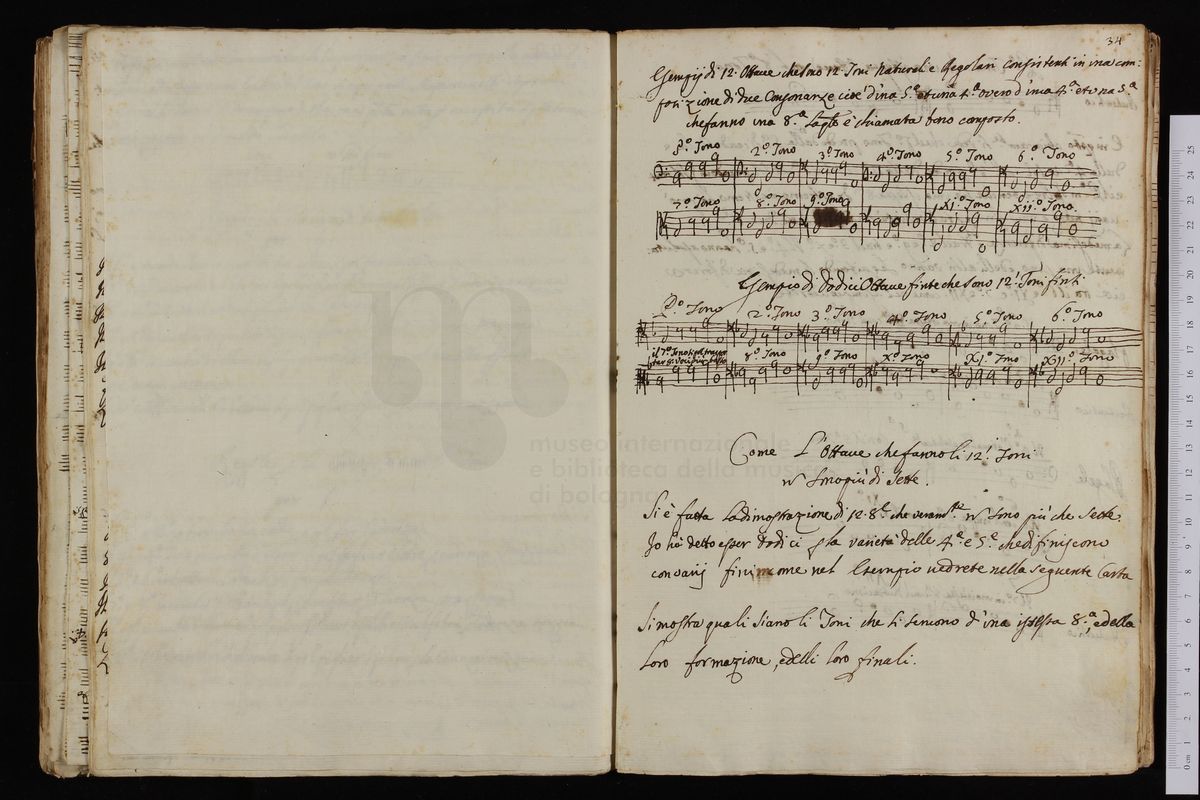 34
Esempij di 12. Ottaue che sono 12. Toni Naturali e Regolari Consistenti in una com:
posizione di due Consonanze cioè d'una 5.ª et una 4.ª overo d'una 4.ª et una 5.ª
che fanno una 8.ª è chiamata bono composto.
P.º Tono 2.º Tono 3.º Tono 4.º Tono 5.º Tono 6.º Tono
7.º Tono 8.º Tono 9.º Tono XI.º Tono XII.º Tono
Esempio di Dodici Ottaue finte che sono 12. Toni finti
P.º Tono 2.º Tono 3.º Tono 4.º Tono 5.º Tono 6.º Tono
il 7.º Tono 8.º Tono 9.º Tono X.º Tono XI.º Tono XII.º Tono
Come L'Ottaue che fanno li 12. Toni
nō sono più di Sette.
Si è fatta La dimostrazione di 12. 8.e che veram.te nō sono più che Sette.
Io hò detto esser dodici p la varietà delle 4.e e 5.e che difiniscono
con varij fini come nel Esempio vedrete nella seguente Carta
Si mostra quali siano li Toni che si seruono d'una istessa 8.ª, e della
loro formazione, e delli loro finali.
museo internazionale
e biblioteca della musica
di bologna
0 cm 1 2 3 4 5 6 7 8 9 10 11 12 13 14 15 16 17 18 19 20 21 22 23 24 25